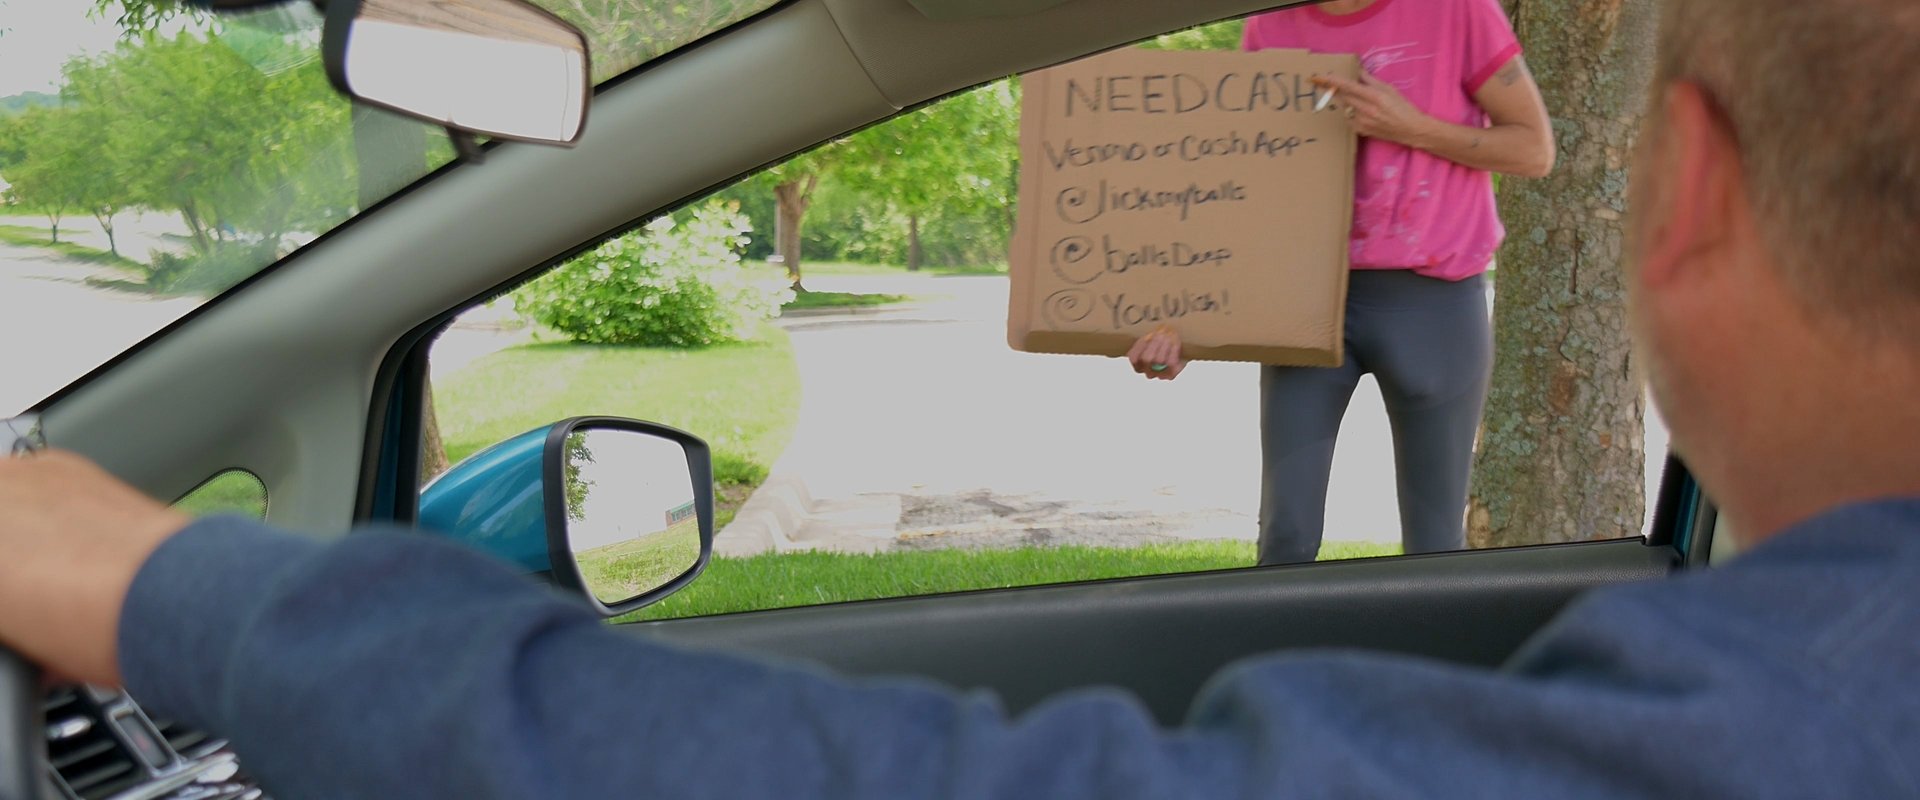 NEED CASH!
Venmo or Cash App-
@lickmyballs
@ballsDeep
@YouWish!